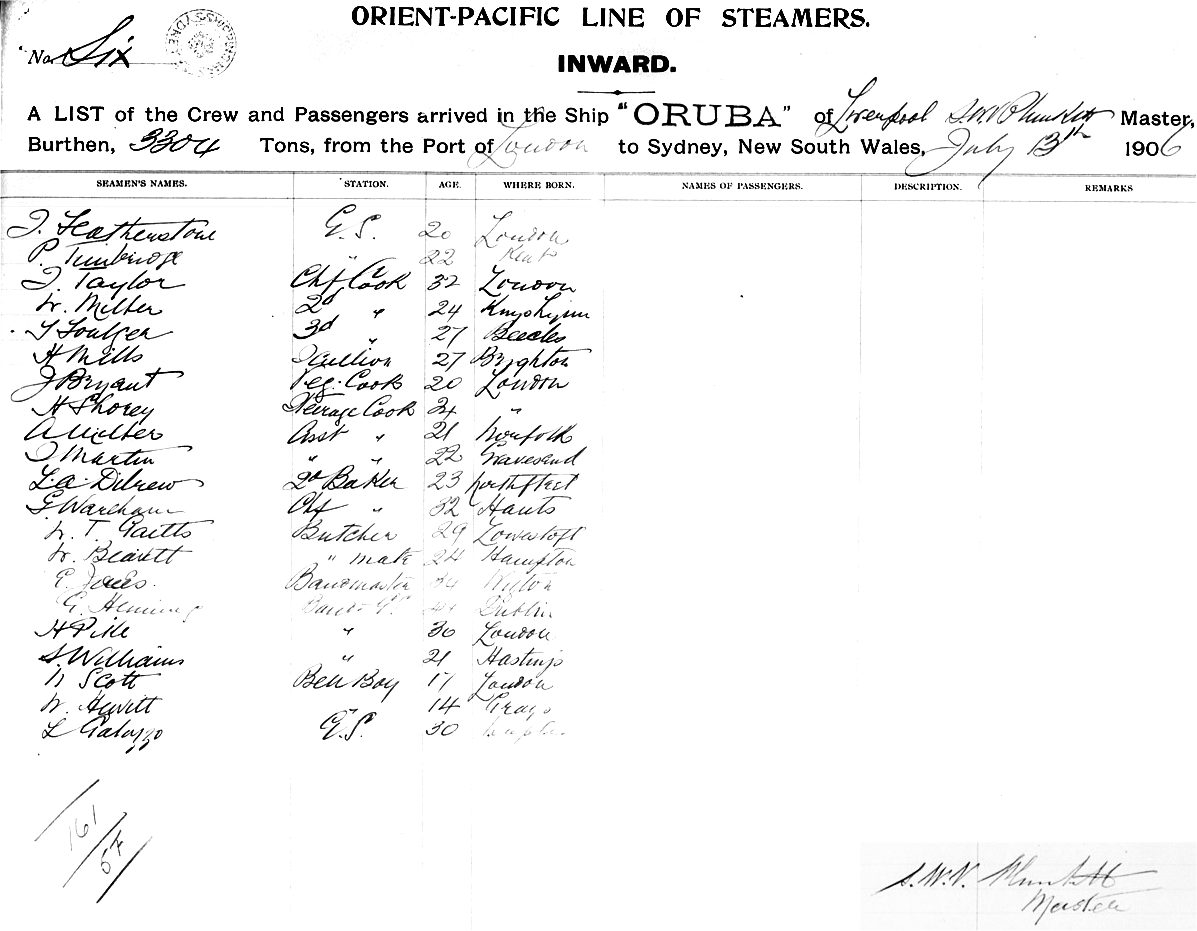 ORIENT-PACIFIC LINE OF STEAMERS.
No. Six
INWARD.
A LIST of the Crew and Passengers arrived in the Ship "ORUBA" of Liverpool S.W.V Plunkett Master,
Burthen, 3304 Tons, from the Port of London to Sydney, New South Wales, July 13th 1906
SEAMEN'S NAMES. STATION. AGE. WHERE BORN. NAMES OF PASSENGERS. DESCRIPTION. REMARKS
J. Featherstone G.S. 20 London
P. Timbridge " 22 Kent
J. Taylor Chf Cook 32 London
W. Milber 2d " 24 Kings Lynn
T Foulger 3d " 27 Beccles
H Mills Scullion 27 Brighton
J Bryant Veg. Cook 20 London
H Shorey Steerage Cook 24 "
A Milber Asst " 21 Norfolk
J Martin " " 22 Gravesend
L.a. Dilrew 2d Baker 23 Northfleet
G Wareham Chf " 32 Hants
W. T. Gaitts Butcher 29 Lowestoft
W. Bearett " mate 24 Hampton
E. Jones. Bandmaster 34
G. Heming Dublin
H Pille " 30 London
S. Williams " 21 Hastings
W Scott Bell Boy 17 London
W. Hewitt " 14 Grays
L Galozzo G.S. 30 Naples
161/57
S.W.V. Plunkett
Master